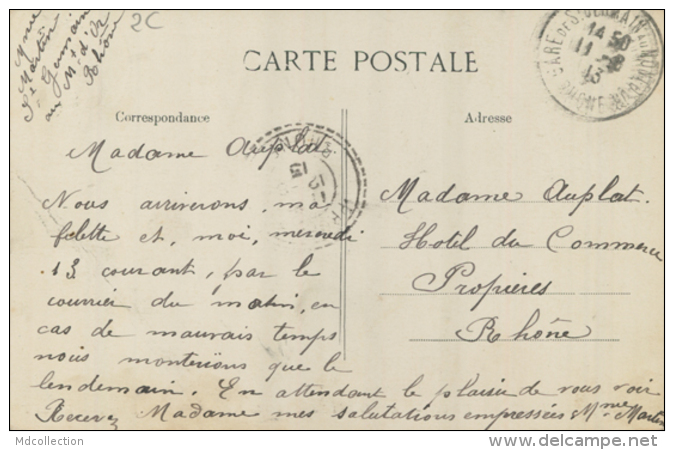 Mme
Martin
St Germain
au Mt d'Or
Rhône
2C
CARTE POSTALE
GARE DE ST GERMAIN AU MONT D'OR
14 50
11 -8
13
RHONE
Correspondance
Adresse
Madame Auplat
Nous arriverons, ma
fillette et, moi, mercredi
13 courant, par le
courrier du matin, en
cas de mauvais temps
nous monterions que le
lendemain. En attendant le plaisir de vous voir
Recevez Madame mes salutations empressées Mme Martin
Madame Auplat.
Hotel du Commerce
Propières
Rhône
Mdcollection
http://www.delcampe.net